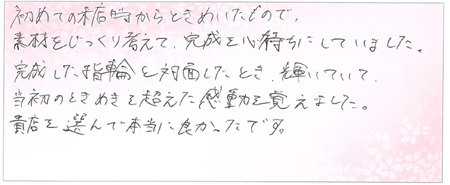 初めての来店時からときめいたもので、
素材をじっくり考えて、完成を心待ちにしていました。
完成した指輪と対面したとき、輝いていて、
当初のときめきを超えた感動を覚えました。
貴店を選んで本当に良かったです。